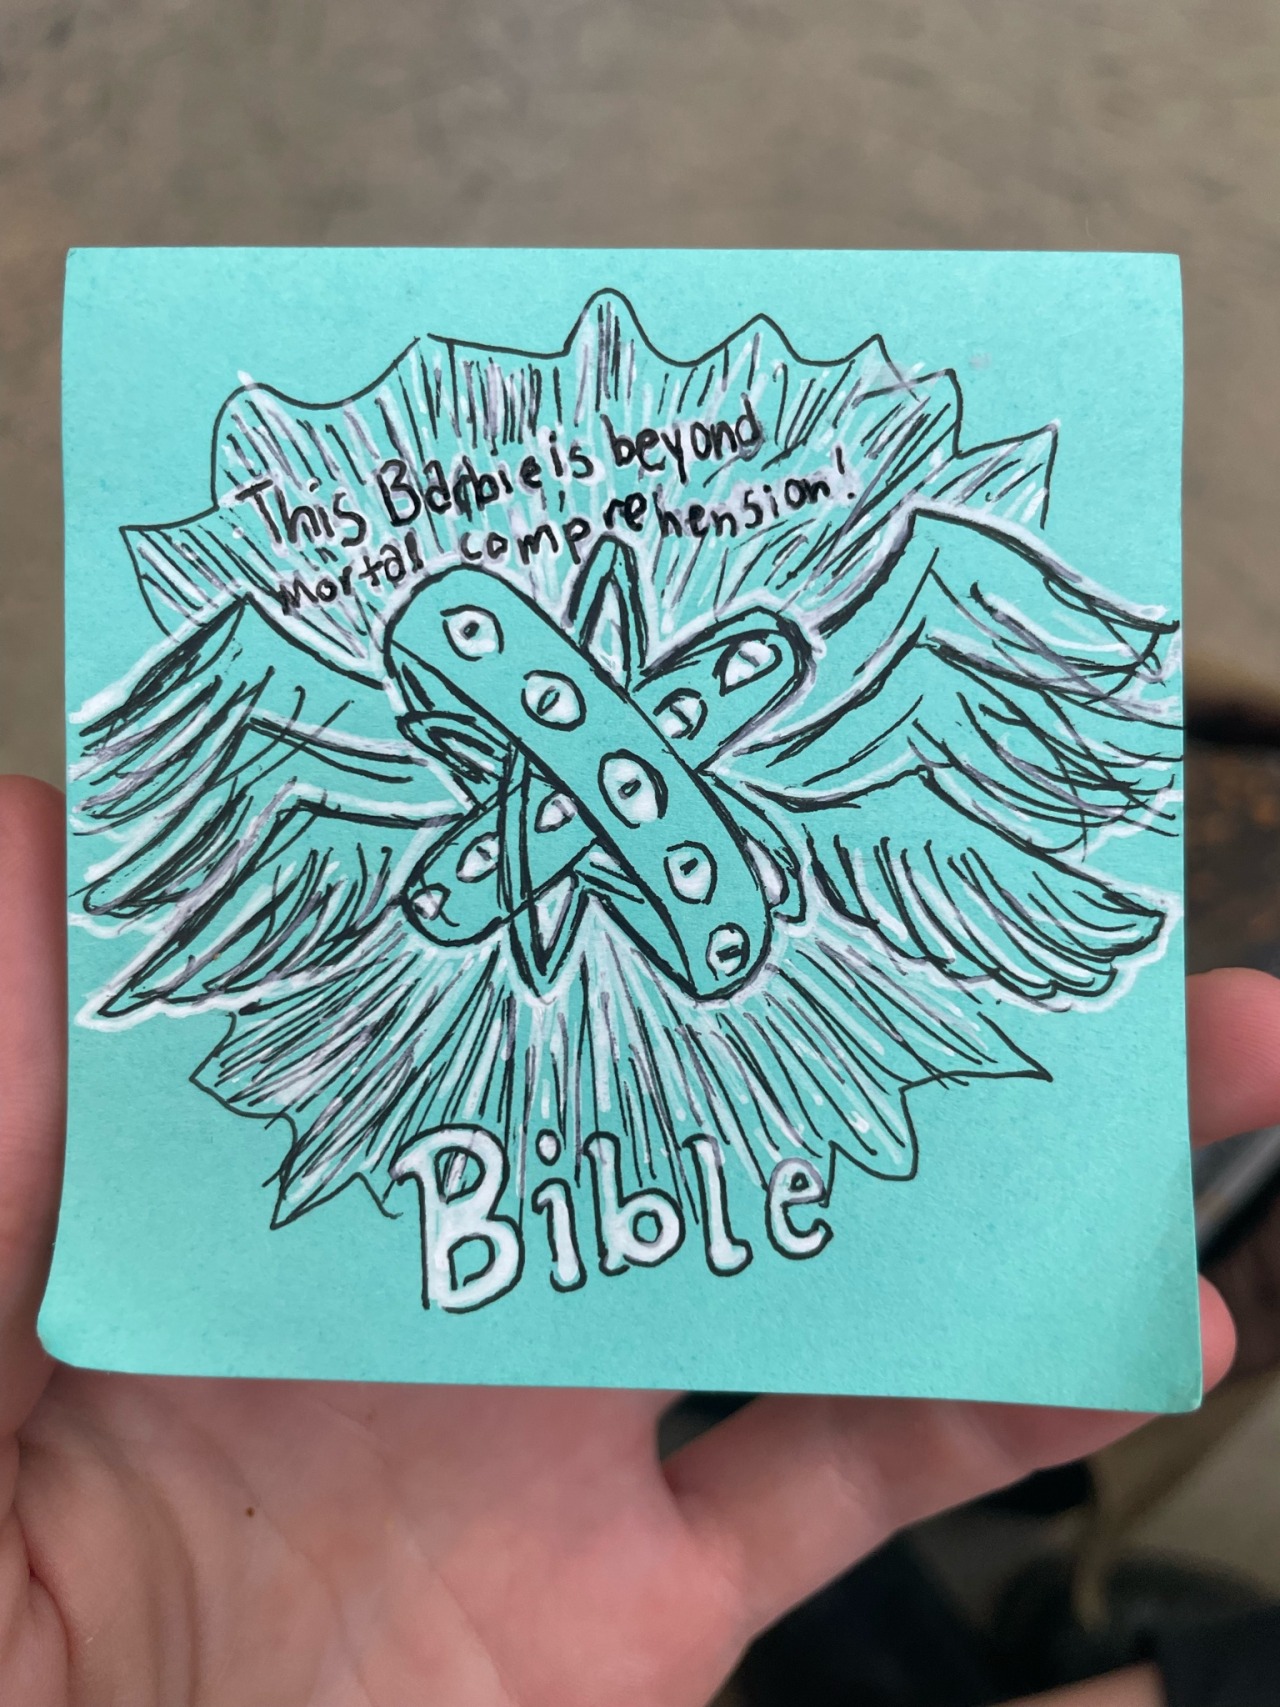 This Barbie is beyond
mortal comprehension!
Bible